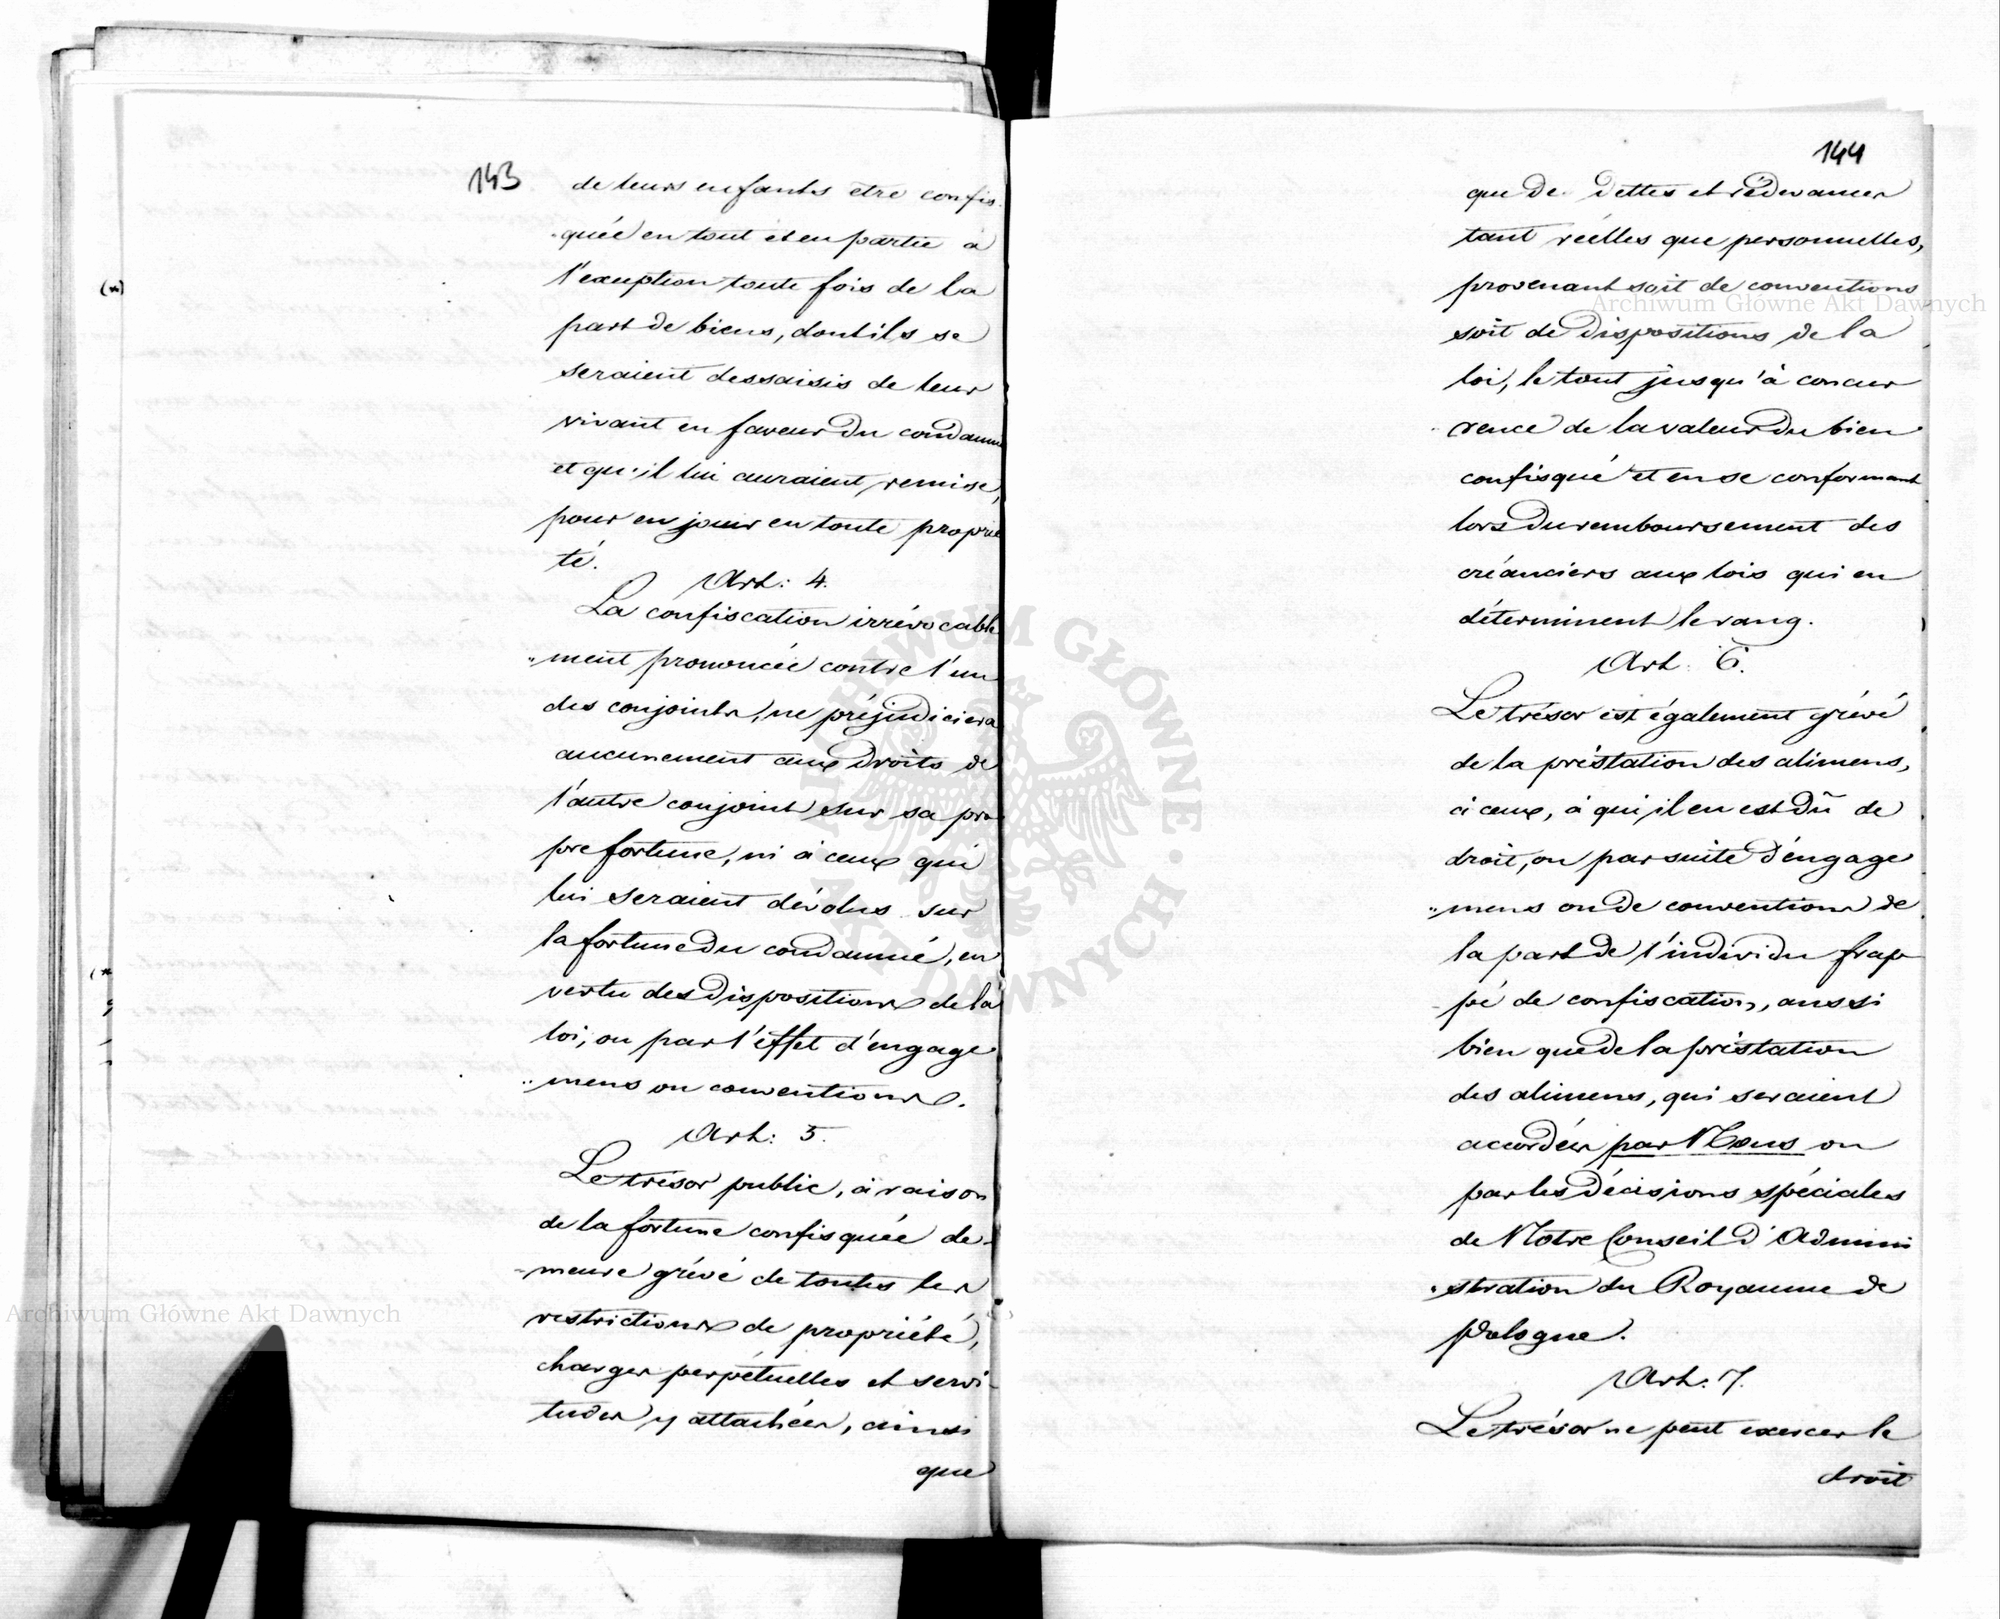 143
de leurs enfants etre confis
-quée en tout et en partie à
l'exception toute fois de la
part de biens, dont ils se
seraient dessaisis de leur
vivant en faveur du condamn
et qu'il lui auraient remise,
pour en jouir en toute proprié
té.
Art: 4.
La confiscation irrévocable
"ment prononcée contre l'un
des conjoints, ne préjudiciera
aucunement aux droits de
l'autre conjoint sur sa pro
pre fortune, ni à ceux qui
lui seraient dévolus sur
la fortune du condamné, en
vertu des dispositions de la
loi, ou par l'effet d'engage
"mens ou conventions.
Art: 5.
Le trésor public, à raison
de la fortune confisquée de-
"meure grévé de toutes les
restrictions de propriété,
charges perpétuelles et servi-
tudes y attachées, ainsi
que
144
que de dettes et rédevances
tant réelles que personnelles,
provenant soit de conventions
soit de dispositions de la
loi, le tout jusqu'à concur
-rence de la valeur du bien
confisqué et en se conformant
lors du remboursement des
créanciers aux lois qui en
déterminent le rang.
Art. 6.
Le trésor est également grévé
de la préstation des alimens,
à ceux, à qui il en est dû de
droit, ou par suite d'engage
"mens ou de conventions de
la part de l'individu frap
-pé de confiscation, aussi
bien que de la préstation
des alimens, qui seraient
accordés par Nous ou
par les décisions spéciales
de Notre Conseil d'Admini
"stration du Royaume de
Pologne.
Art. 7.
Le trésor ne peut exercer le
droit
(*)
(*
Archiwum Główne Akt Dawnych
Archiwum Główne Akt Dawnych
ARCHIWUM GŁÓWNE AKT DAWNYCH